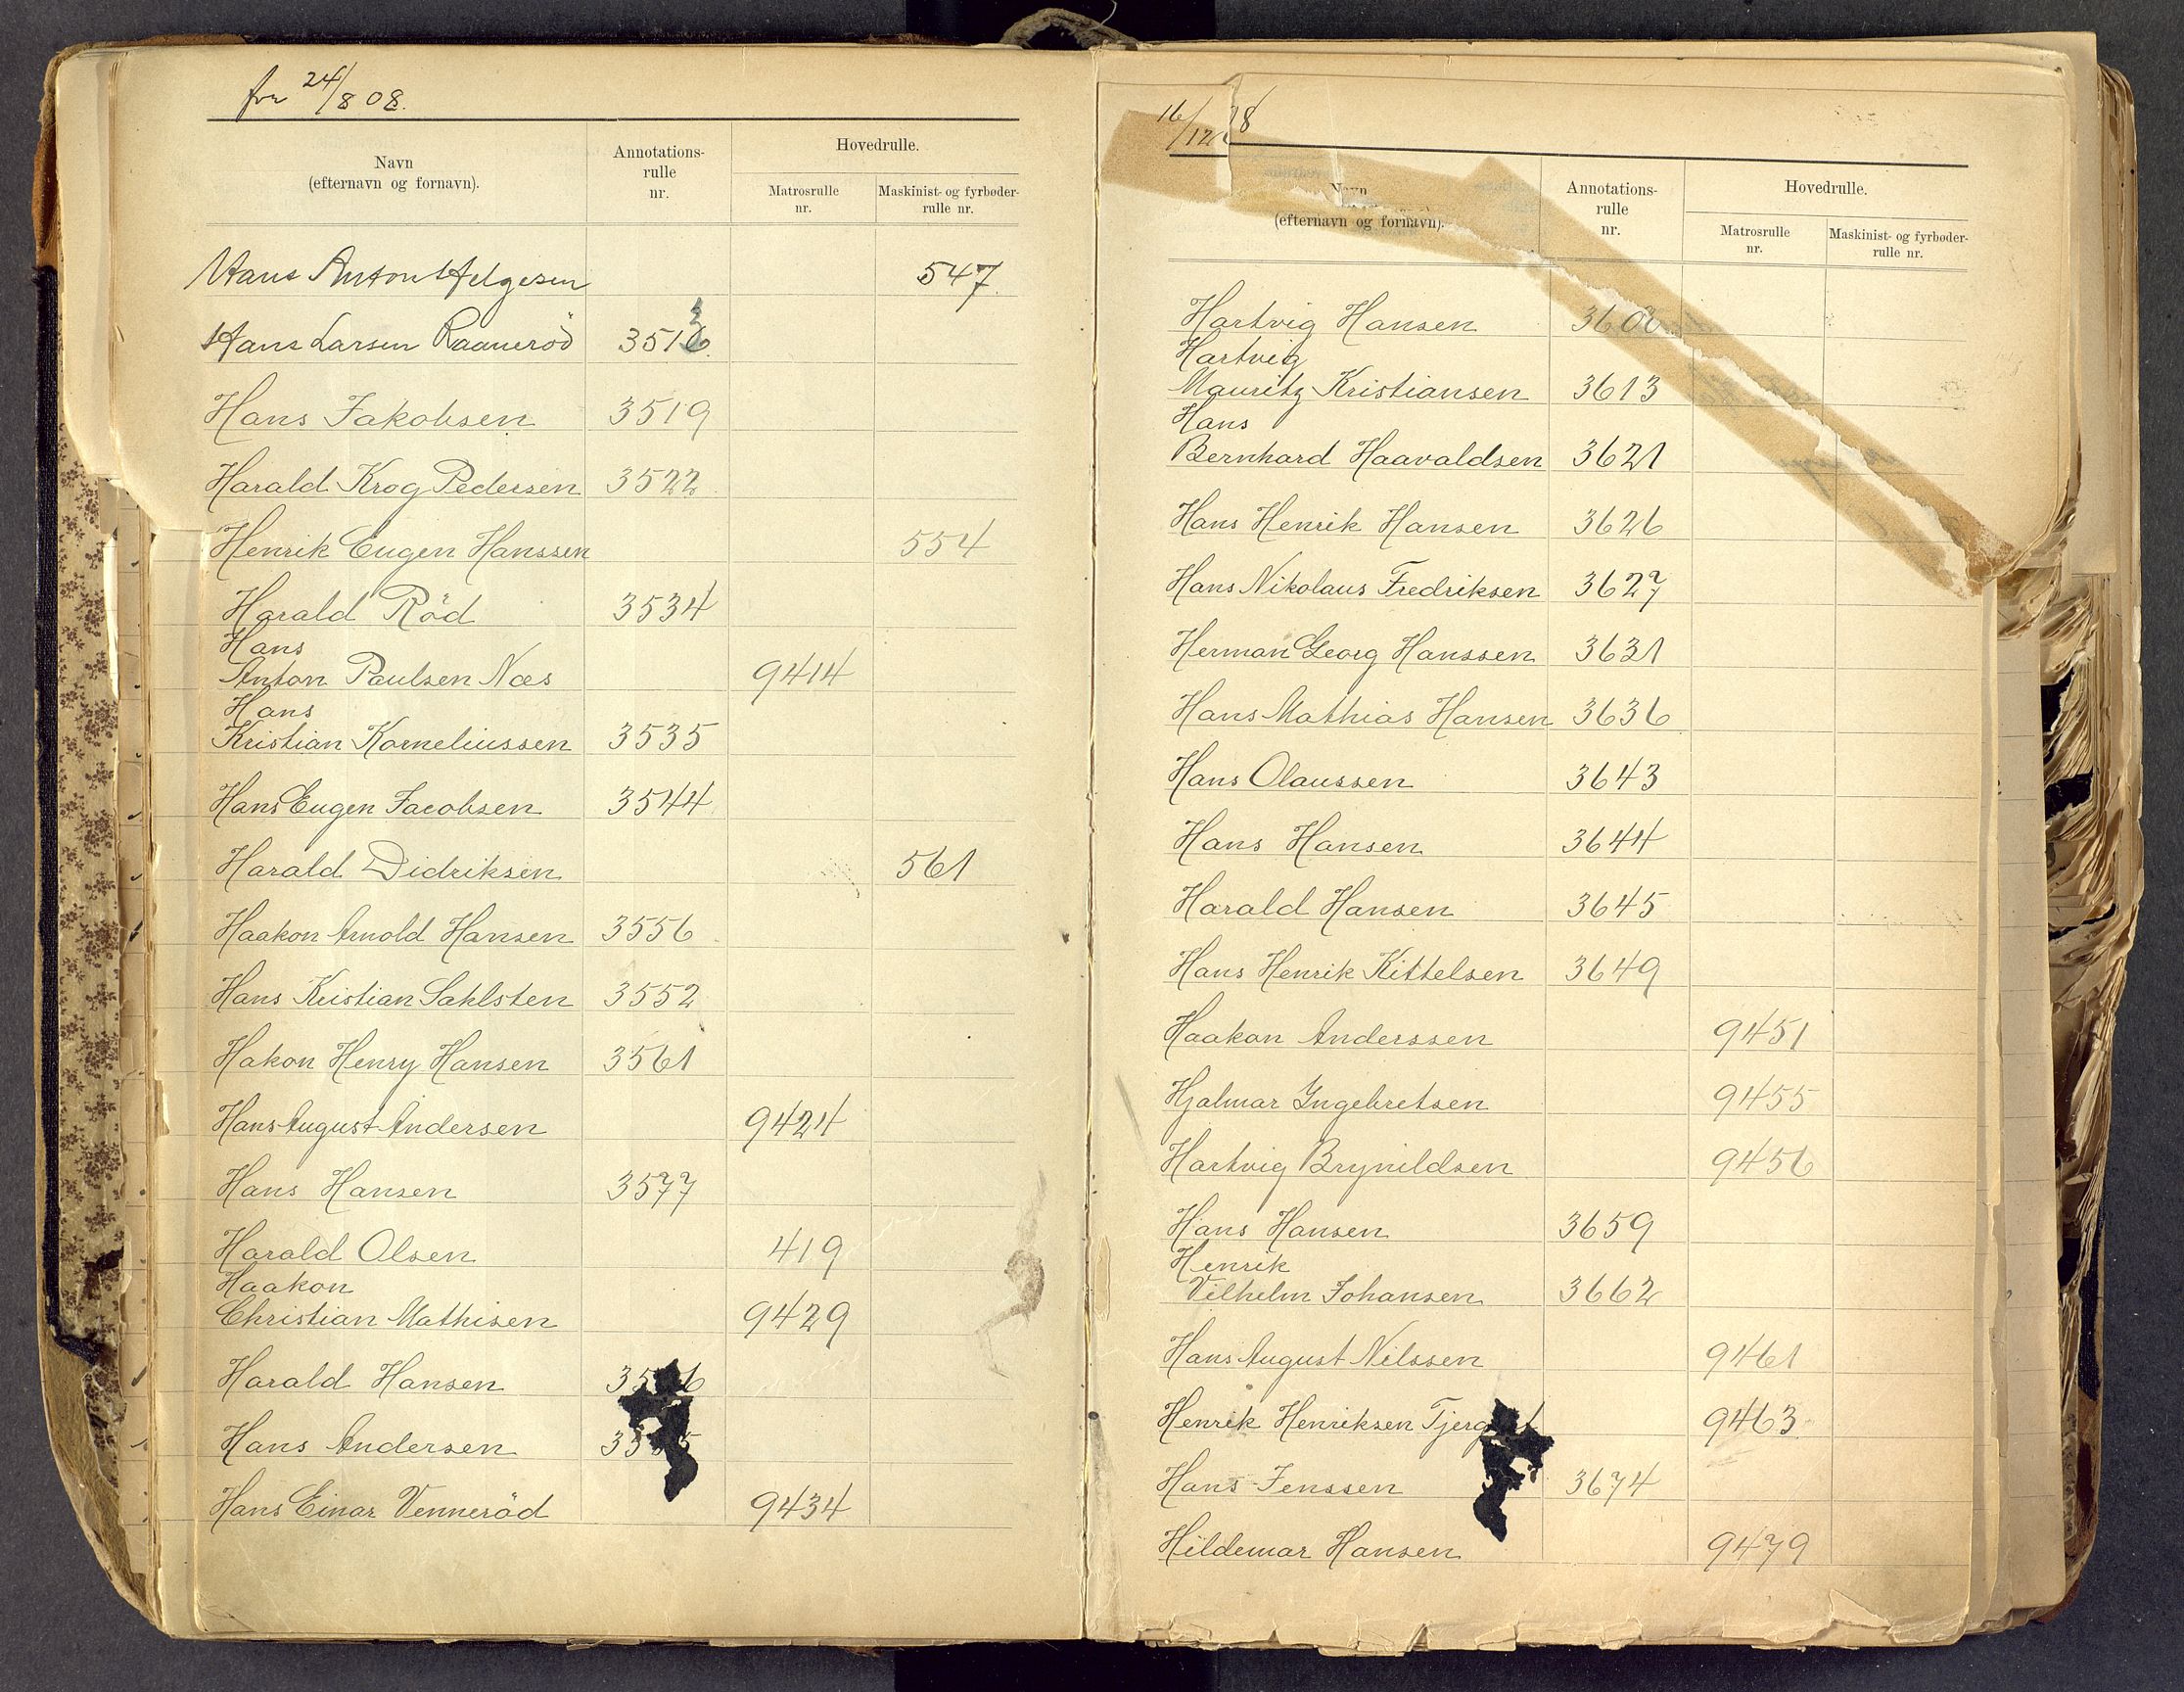 fra 24/8 08.
Navn
(efternavn og fornavn).
Annotations-
rulle
nr.
Hovedrulle.
Matrosrulle
nr.
Maskinist- og fyrbøder-
rulle nr.
Hans Anton Helgesen 547
Hans Larsen Raaneröd
Hans Jakobsen 3519
Harald Krog Pedersen 3522
Henrik Eugen Hanssen 554
Harald Röd 3534
Hans
Anton Paulsen Næs 9414
Hans
Kristian Korneliussen 3535
Hans Eugen Jacobsen 3544
Harald Didriksen 561
Haakon Arnold Hansen 3556
Hans Kristian Sahlsten 3552
Hakon Henry Hansen 3561
Hans August Andersen 9424
Hans Hansen 3577
Harald Olsen 419
Haakon
Christian Mathisen 9429
Harald Hansen
Hans Andersen
Hans Einar Venneröd 9434
16/12
Navn
(efternavn og fornavn).
Annotations-
rulle
nr.
Hovedrulle.
Matrosrulle
nr.
Maskinist- og fyrbøder-
rulle nr.
Hartvig Hansen
Hartvig
Mauritz Kristiansen 3613
Hans
Bernhard Haavaldsen 3621
Hans Henrik Hansen 3626
Hans Nikolaus Fredriksen 3627
Herman Georg Hanssen 3631
Hans Mathias Hansen 3636
Hans Olaussen 3643
Hans Hansen 3644
Harald Hansen 3645
Hans Henrik Kittelsen 3649
Haakon Anderssen 9451
Hjalmar Ingebretsen 9455
Hartvig Brynildsen 9456
Hans Hansen 3659
Henrik
Vilhelm Johansen 3662
Hans August Nilssen 9461
Henrik Henriksen 9463
Hans Jenssen 3674
Hildemar Hansen 9479